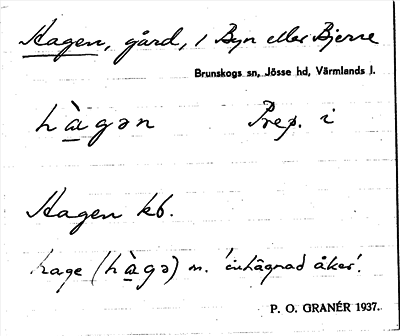 Hagen, gård, i Byn eller Bjerre
Brunskogs sn, Jösse hd, Värmlands l.
hàgən Prep. i
Hagen kb.
hage (hàgə) m. 'inhägnad åker'.
P. O. GRANÉR 1937.